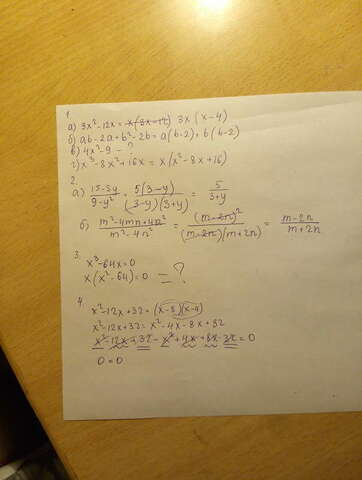 1.
а) 3x²-12x = x(3x-12) 3x(x-4)
б) ab-2a+b²-2b = a(b-2)+b(b-2)
в) 4x²-9 - ?
г) x³-8x²+16x = x(x²-8x+16)
2.
а) (15-5y)/(9-y²) = 5(3-y)/((3-y)(3+y)) = 5/(3+y)
б) (m²-4mn+4n²)/(m²-4n²) = (m-2n)²/((m-2n)(m+2n)) = (m-2n)/(m+2n)
3.
x³-64x=0
x(x²-64)=0 = ?
4.
x²-12x+32 = (x-8)(x-4)
x²-12x+32 = x²-4x-8x+32
x²-12x+32-x²+4x+8x-32=0
0=0